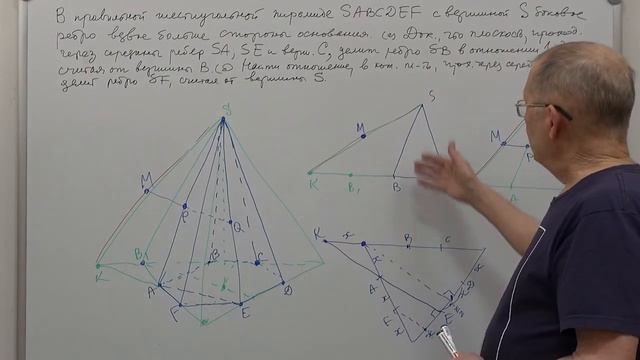 В правильной шестиугольной пирамиде SABCDEF с вершиной S боковое
ребро вдвое больше стороны основания. (а) Док., что плоскость, проход.
через середины рёбер SA, SE и верш. C, делит ребро SB в отношении 1
считая от вершины B. (б) Найти отношение, в кот. пл-ть, прох. через сере
делит ребро SF, считая от вершины S.
S
S
M
M
P
Q
K
B₁
B
M
P
A
K
B₁
B
C
A
F
E
D
K
x
B
C
x
A
F
x
x
E
D